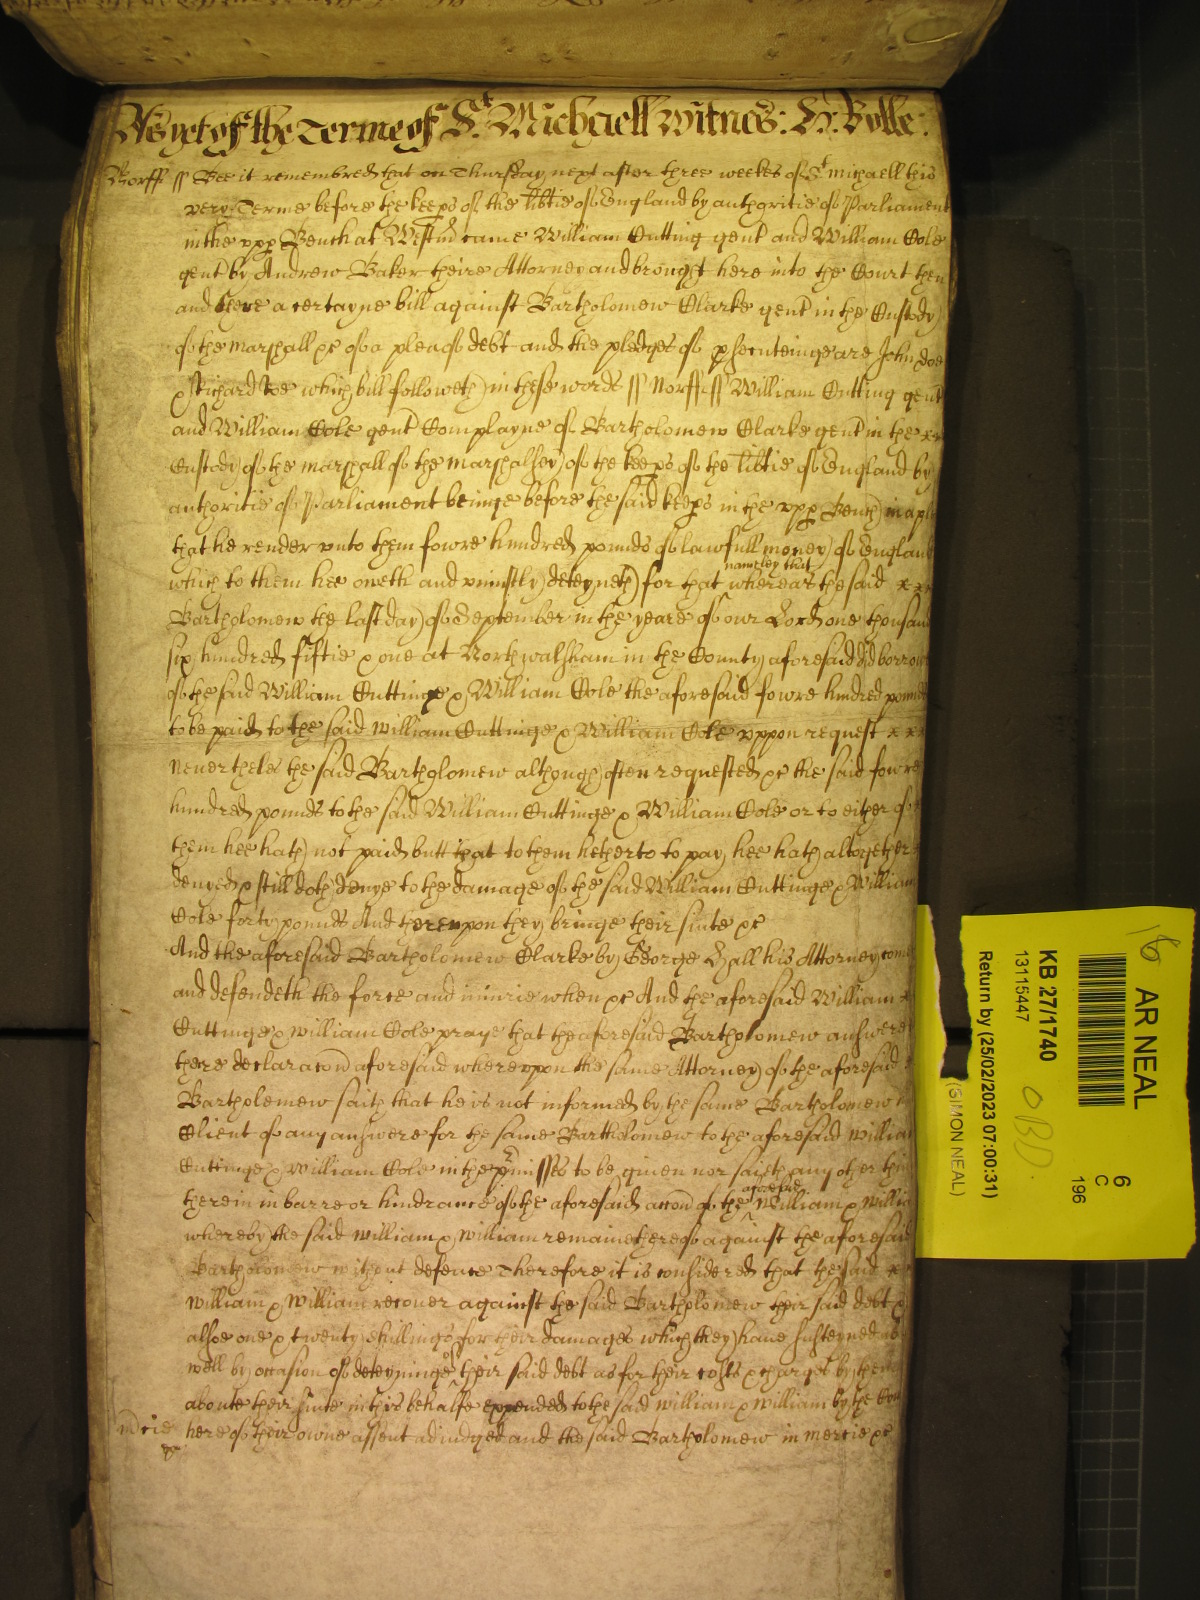 As yet of the Terme of St. Michaell Witnes: H: Rolle:
Norff ss Bee it remembred that on Thursday next after three weekes of St michaell this
very Terme before the keeps of the libtie of England by authoritie of Parliament
in the upp Bench at Westm came William Cutting gent and William Cole
gent by Andrew Baker theire Attorney and brought here into the Court then
and there a certayne bill against Bartholomew Clarke gent in the Custody
of the marshall &c of a plea of debt and the pledges of psecuteinge are John doe
& Richard roe which bill followeth in these words ss Norff ss William Cutting gent
and William Cole gent Complayne of Bartholomew Clarke gent in the
Custody of the marshall of the marshalsey of the keeps of the libtie of England by
authoritie of Parliament beinge before the said keeps in the upp Bench in a plea
that he render unto them fowre hundred pounds of lawfull money of England
which to them hee oweth and uniustly deteyneth for that whereas the said
nameley that
Bartholomew the last day of September in the yeare of our Lord one thousand
six hundred fiftie & one at Northwalsham in the County aforesaid did borrow
of the said William Cuttinge & William Cole the aforesaid fowre hundred pounds
to be paid to the said William Cuttinge & William Cole uppon request
neverthelesse the said Bartholomew although often requested &c the said fowre
hundred pounds to the said William Cuttinge & William Cole or to either of
them hee hath not paid butt that to them hetherto to pay hee hath altogether
denyed & still doth denye to the damage of the said William Cuttinge & William
Cole forty pounds And thereupon they bringe their suite &c
And the aforesaid Bartholomew Clarke by George Hall his Attorney come
and defendeth the force and iniurie when &c And the aforesaid William
Cuttinge & William Cole praye that the aforesaid Bartholomew answere
there declaracon aforesaid whereuppon the same Attorney of the aforesaid
Bartholemew saith that he is not informed by the same Bartholomew
Client of any answere for the same Bartholomew to the aforesaid William
Cuttinge & William Cole in the pmisses to be given nor saieth any other thing
therein in barre or hindrance of the aforesaid accon of the aforesaid William & William
whereby the said William & William remaine thereof against the aforesaid
Bartholomew without defence Therefore it is considered that the said
William & William recover against the said Bartholomew their said debt &
alsoe one & twenty shillings for their damages which they have susteyned as
well by occasion of deteyninge of their said debt as for their costs & charges by them
aboute their suite in this behalfe expended to the said William & William by the Court
mcie here of their owne assent adiudged and the said Bartholomew in mercie &c
16
AR NEAL
KB 27/1740
13115447
Return by (25/02/2023 07:00:31)
(SIMON NEAL)
OBD
6
C
196